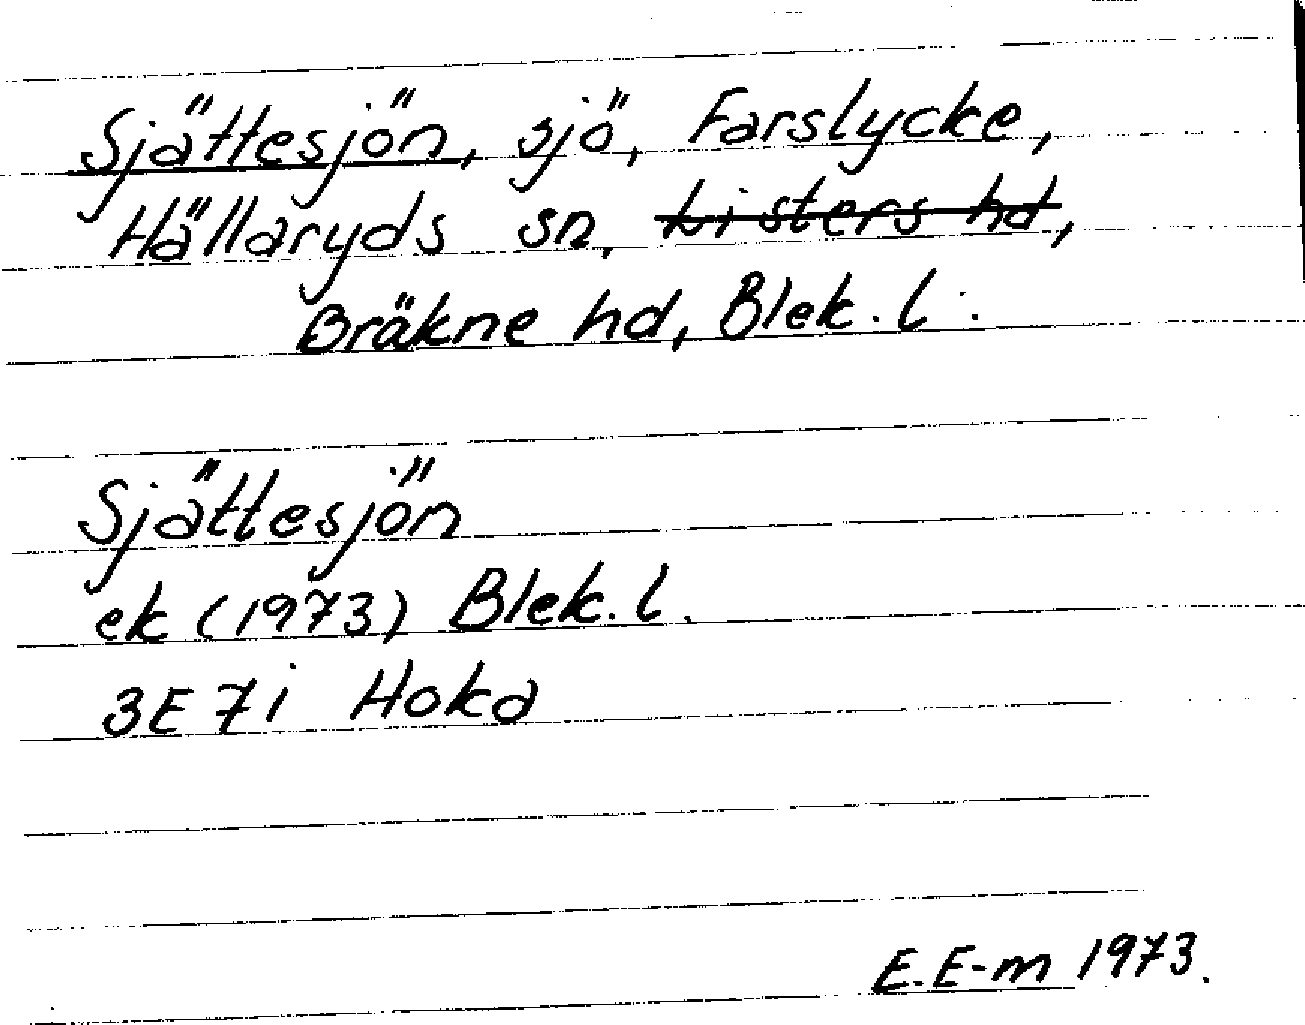 Sjättesjön, sjö, Farslycke,
Hällaryds sn, Listers hd,
Bräkne hd, Blek. l.
Sjättesjön
ek (1973) Blek. l.
3E 7i Hoka
E. E-m 1973.